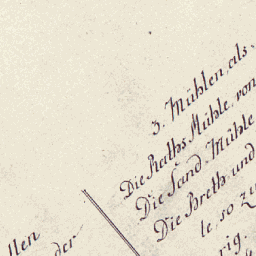 3. Mühlen, als
Die Raths Mühle, von
Die Sand Mühle
Die Breth und
te, so zu
rig.
llen
der